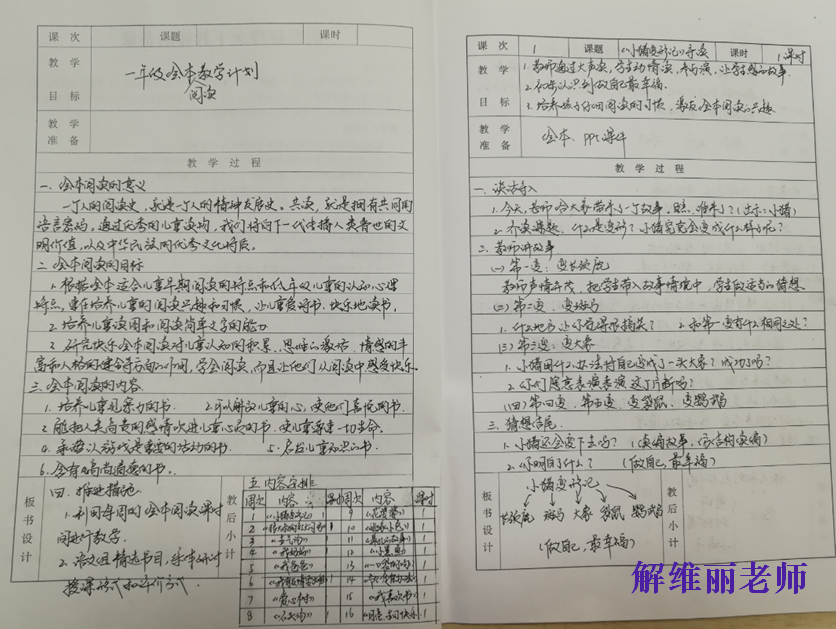 课 次
课题
课时
教 学
目 标
一年级绘本教学计划
阅读
教 学
准 备
教 学 过 程
一、绘本阅读的意义
一个人的阅读史，就是一个人的精神发展史。共读，就是拥有共同的
语言密码，通过优秀的儿童读物，我们将向下一代传播人类普世的文
明价值，以及中华民族的优秀文化特质。
二、绘本阅读的目标
1. 根据绘本适合儿童早期阅读的特点和低年级儿童的认知心理
特点，重在培养儿童的阅读兴趣和习惯，让儿童爱好书、快乐地读书。
2. 培养儿童读图和阅读简单文字的能力
3. 研究快乐绘本阅读对儿童认知的积累、思维的激活、情感的丰
富和人格的健全等方面的作用，学会阅读，而且让他们从阅读中感受快乐。
三、绘本阅读的内容
1. 培养儿童观察力的书. 2. 可以解放儿童的心，使他们喜悦的书.
3. 能把人类高贵的感情吹进儿童心灵的书，使儿童尊重一切生命.
4. 承认游戏是重要的活动的书. 5. 启发儿童知识的书.
6. 含有高尚道德的书。
板
书
设
计
四、推进措施
1. 利用每周的绘本阅读课时
间进行教学.
2. 语文组精选书目，集体研讨
授课形式和评价方式.
教
后
小
计
五、内容安排
周次 内容 课时 周次 内容 课时
1 《小猪变形记》 1 9 1
2 1 10 1
3 1 11 1
4 《我妈妈》 1 12 1
5 《我爸爸》 1 13 1
6 1 14 1
7 《爱心树》 1 15 1
8 1 16 1
课 次
1
课题
《小猪变形记》导读
课时
1课时
教 学
目 标
1. 教师通过大声读，学生动情读、来尚演，让学生感知故事.
2. 初步认识到做自己最幸福.
3. 培养孩子仔细阅读的习惯，激发绘本阅读兴趣
教 学
准 备
绘本、ppt课件
教 学 过 程
一、谈话导入
1. 今天，老师给大家带来了一个故事，瞧，谁来了？(出示：小猪)
2. 齐读课题，什么是变形？小猪究竟会变成什么样子呢？
二、教师讲故事
(一) 第一变：变长颈鹿
教师声情并茂，把学生带入故事情境中，学生做适当的猜想.
(二) 第二变，变斑马
1. 什么地方让你觉得很搞笑？ 2. 和第一变有什么相同之处？
(三) 第三变：变大象
1. 小猪用什么办法将自己变成了一头大象？成功了吗？
2. 你们愿意表演表演这个片断吗？
(四) 第四变、第五变，变袋鼠、变鹦鹉
三、猜想结尾
1. 小猪还会变下去吗？(读猜故事，完结构读编)
2. 你明白了什么？ (做自己，最幸福)
板
书
设
计
小猪变形记
长颈鹿 斑马 大象 袋鼠 鹦鹉
(做自己，最幸福)
教
后
小
计
解维丽老师